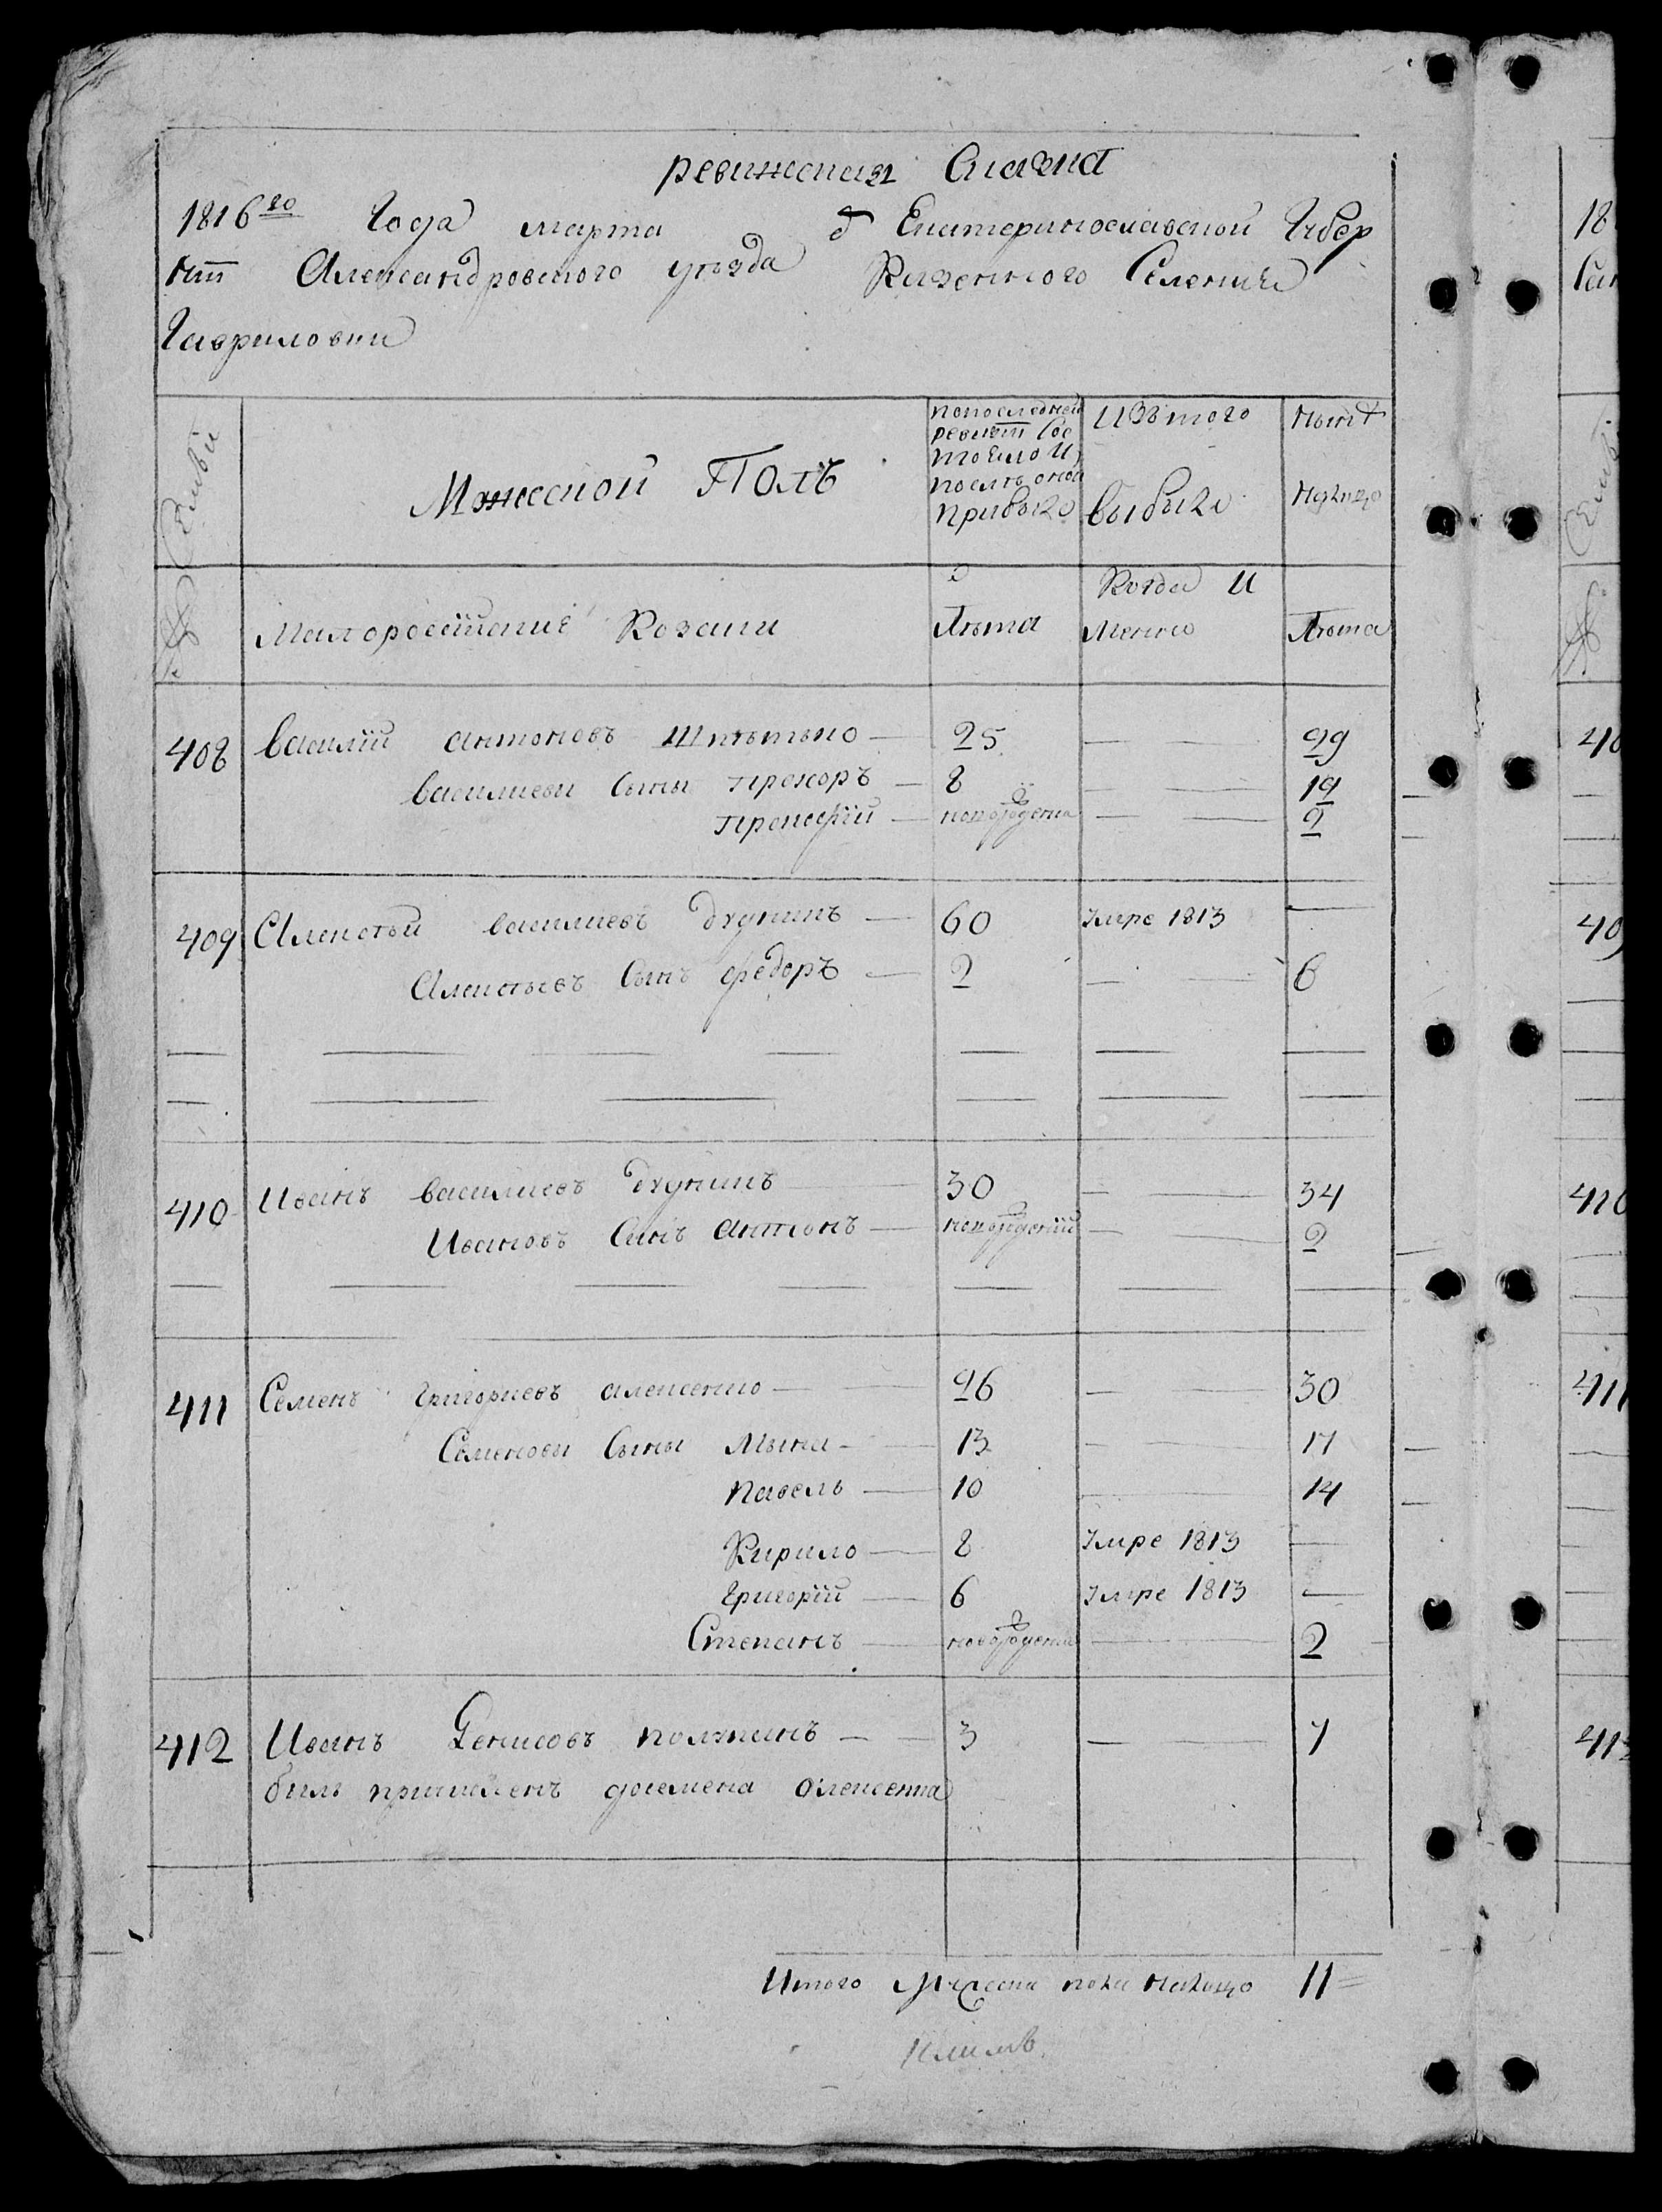 ревижская Сказка
1816го Года марта д Екатеринославской Губер
нїи Александровского уезда Казенного Селенїя
Гавриловки
Семьи
Мужеской Полъ
попоследней ревизїи сос тояло и после оной прибыло
Изъ того выбыло
Ныне налицо
№
Малоросейские Козаки
Лета
Когда и Менно
Лета
408 василїй антоновъ Шпетько — 25 — 29
василиеви Сыны прохоръ — 8 — 12
прокофїй — новорожденна — 2
409 Алексей василиевъ дудникъ — 60 Умре 1813 —
Алексеевъ Сынъ федоръ — 2 — 6
410 Иванъ василиевъ дудникъ — 30 — 34
Ивановъ Синъ антонъ — новорожденїй — 2
411 Семенъ григориевъ алексенко — 26 — 30
Семенови Сыны Мина — 13 — 17
павелъ — 10 — 14
Кирило — 8 Умре 1813 —
григорїй — 6 Умре 1813 —
Степанъ — новорожденна — 2
412 Иванъ Денисовъ полункинъ — 3 — 7
билъ причисленъ усемена олексенка
Итого Мужеска пола налицо 11